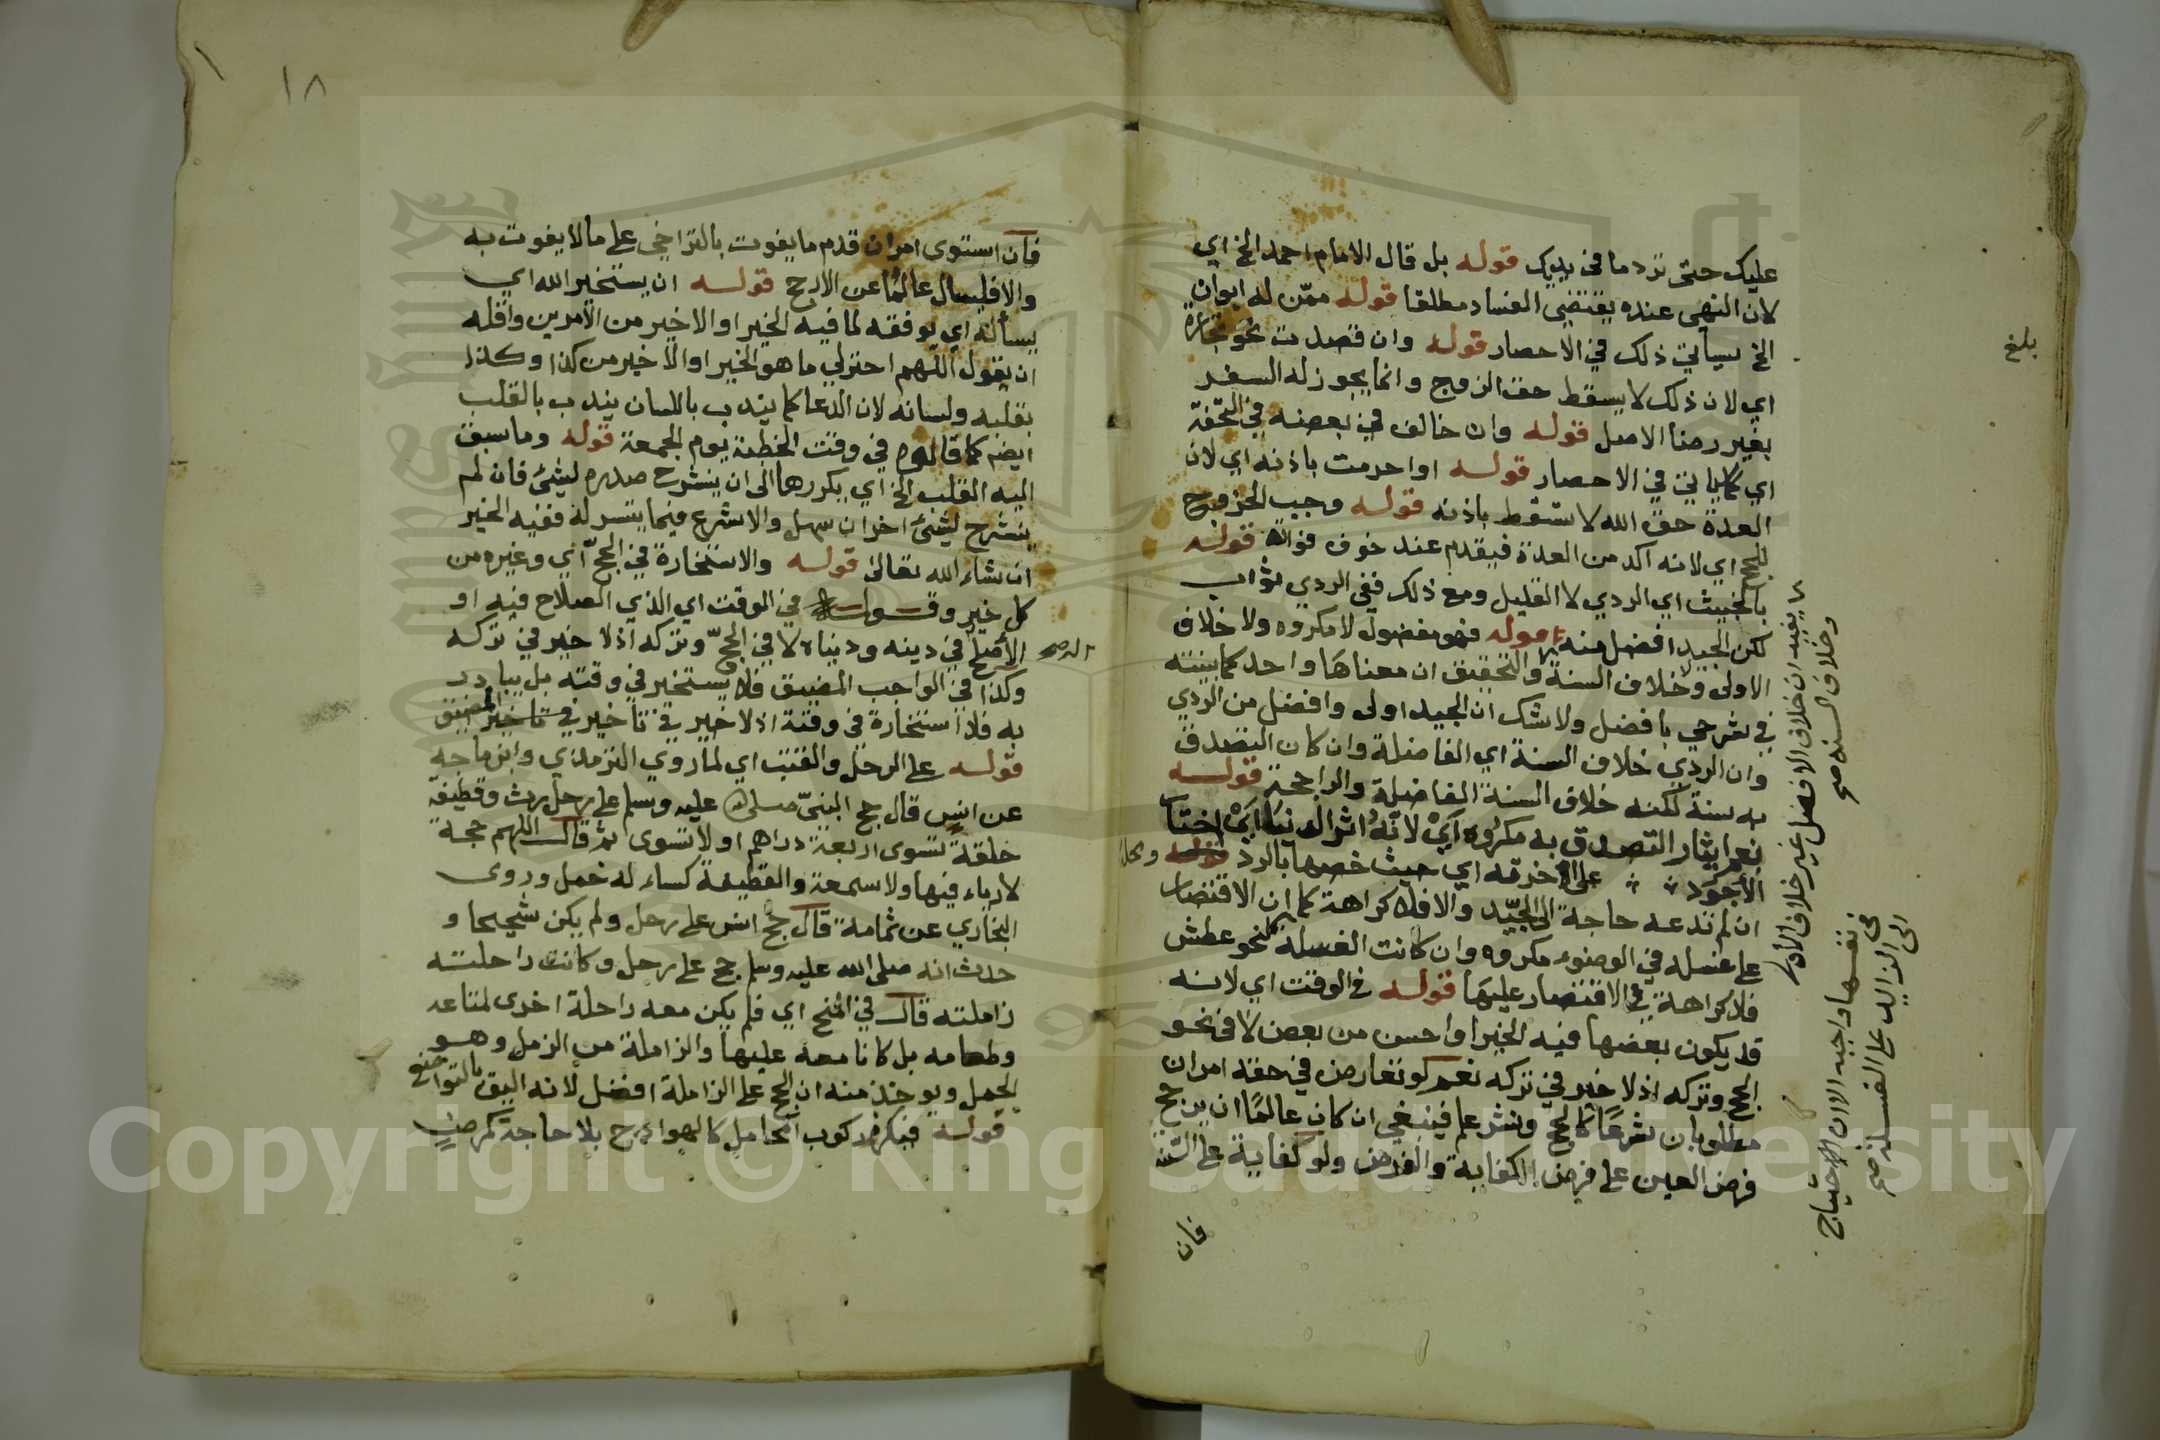 عليك حتى ترد ما في يديك قوله بل قال الامام احمد الخ اي
لان النهي عنده يقتضي الفساد مطلقا قوله ممن له ابوان
الخ سيأتي ذلك في الاحصار قوله وان قصدت نحو تجارة
اي لان ذلك لا يسقط حق الزوج وانما يجوز له السفر
بغير رضا الاصل قوله وان خالف في بعضه في التحفة
اي كما يأتي في الاحصار قوله او احرمت باذنه اي لان
العدة حق الله لا تسقط باذنه قوله وجب الخروج
للحج اي لانه اكد من العدة فيقدم عند خوف فواته قوله
بالخبيث اي الردي لا القليل ومع ذلك ففي الردي ثواب
لكن الجيد افضل منه قوله فهو مفضول لا مكروه ولا خلاف
الاولى ولا خلاف السنة والتحقيق ان معناها واحد كما بينته
في شرحي بافضل ولا شك ان الجيد اولى وافضل من الردي
وان الردي خلاف السنة اي الفاضلة وان كان التصدق
به سنة لكنه خلاف السنة الفاضلة والراجحة قوله
نعم ايثار التصدق به مكروه اي لانه اثر الدنيا اي اختار
الأجود على الآخرة اي حيث خصها بالرد
ان لم تدعه حاجة الى الجيد والا فلا كراهة كما ان الاقتصار
على غسله في الوضوء مكروه وان كانت الغسلة لنحو عطش
فلا كراهة في الاقتصار عليها قوله في الوقت اي لانه
قد يكون بعضها فيه الخير او احسن من بعض لا في نحو
الحج وتركه اذ لا خير في تركه نعم لو تعارض في حقه امران
مطلوبان شرعا كالحج ونشر علم فينبغي ان كان عالما ان يرجح
فرض العين على فرض الكفاية والفرض ولو كفاية على السنة
فان
بلغ
يفيد ان خلاف الافضل غير خلاف الاولى
وخلاف السنة صح
نفسها واجبه الا ان الاحتياج
الى الزايد على الغسلة صح
١٨
فان استوى امران قدم ما يفوت بالتراخي على ما لا يفوت به
والا فليسال عالما عن الارجح قوله ان يستخير الله اي
يسأله اي يوفقه لما فيه الخير او الاخير من الأمرين واقله
ان يقول اللهم اختر لي ما هو الخير او الاخير من كذا وكذا
بقلبه ولسانه لان الدعا كما يندب باللسان يندب بالقلب
ايضا كما قالوه في وقت الخطبة يوم الجمعة قوله وما سبق
اليه القلب الخ اي يكررها الى ان ينشرح صدره لشيئ فان لم
ينشرح لشيئ اخر ان سهل والا شرع فيما يتسر له ففيه الخير
ان شاء الله تعالى قوله والاستخارة في الحج اي وغيره من
كل خير وقوله في الوقت اي الذي الصلاح فيه او
الأصلح في دينه ودنياه لا في الحج وتركه اذ لا خير في تركه
وكذا في الواجب المضيق فلا يستخير في وقته بل يبادر
به فلا استخارة في وقته اذ لا خير في تأخير المضيق
قوله على الرحل والقتب اي لما روي الترمذي وابن ماجه
عن انس قال حج النبي صلى الله عليه وسلم على رحل رث وقطيفة
خلقة تسوى اربعة دراهم او لا تسوى ثم قال اللهم حجة
لا رياء فيها ولا سمعة والقطيفة كساء له خمل وروى
البخاري عن ثمامة قال حج انس على رحل ولم يكن شحيحا و
حدث انه صلى الله عليه وسلم حج على رحل وكانت راحلته
زاملته قال في الفتح اي فلم يكن معه راحلة اخرى لمتاعه
وطعامه بل كانا معه عليها والزاملة من الزمل وهو
الحمل ويوخذ منه ان الحج على الزاملة افضل لانه اليق بالتواضع
قوله فيكره ركوب المحامل كالهوادج بلا حاجة كمرض